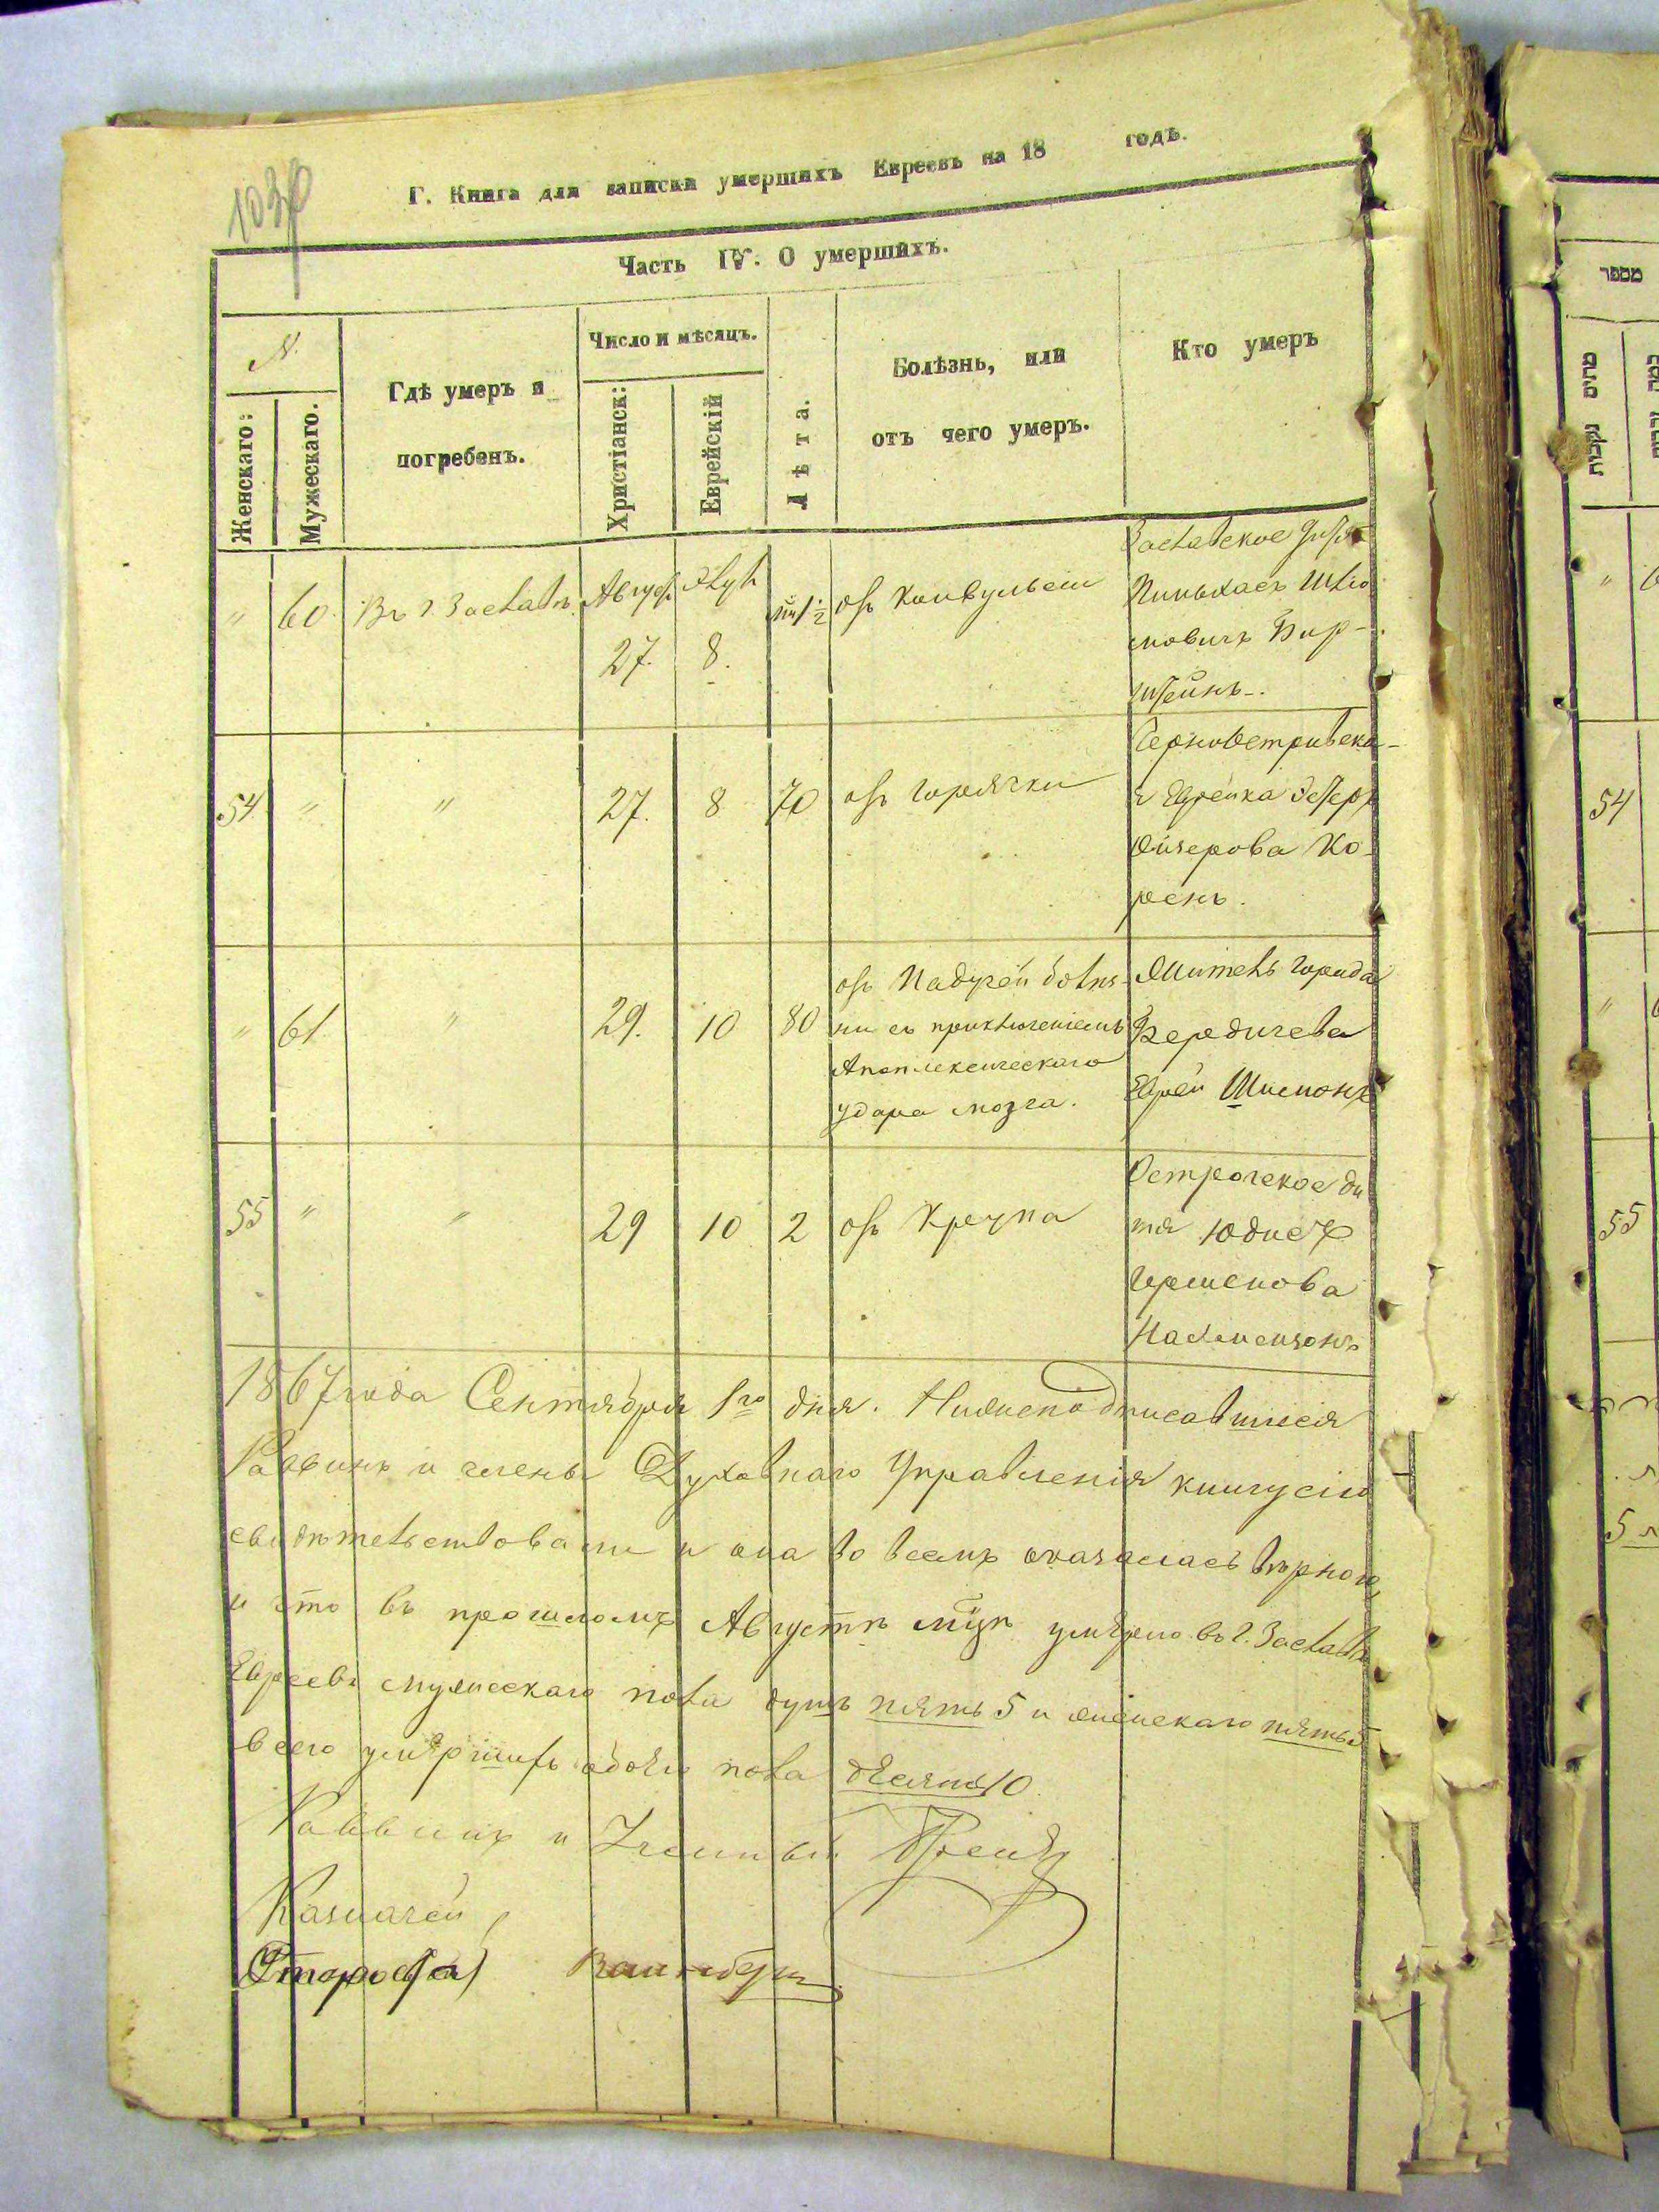 1030
Г. Книга для записки умершихъ Евреевъ на 18 годъ.
Часть IV. О умершихъ.
N.
Женскаго:
Мужескаго.
Гдѣ умеръ и
погребенъ.
Число и мѣсяцъ.
Христіанск:
Еврейскій
Лѣта.
Болѣзнь, или
отъ чего умеръ.
Кто умеръ
" 60 Въ г. Заславѣ. Август 27. 8. 1½ отъ конвульсіи
Заславское дитя
Пинькасъ Шліо
мовичъ Бир-
штейнъ.
54 " " 27. 8 70 отъ горячки
Черноостривска-
я Еврейка Эстеръ
Ойзерова Ко-
рень.
" 61 " 29. 10 80 отъ Падучей болѣз-
ни съ приключеніемъ
Апоплексическаго
удара мозга.
Житель города
Бердичева
Еврей Шимонъ
55 " " 29 10 2 отъ Крупа
Острогское ди
тя Юдись
Гершкова
1867 года Сентября 1го дня. Нижеподписавшіеся
Раввинъ и члены Духовнаго Управленія книгу сію
свидѣтельствовали и она во всемъ оказалась вѣрною,
и что въ прошломъ Августѣ мцѣ умерло въ г. Заславѣ
Евреевъ мужескаго пола душъ пять 5 и женскаго пять 5
всего умершихъ обоего пола десять 10
Раввинъ и Ученый
Казначей
Староста Ваинбергъ
מספר
54
55